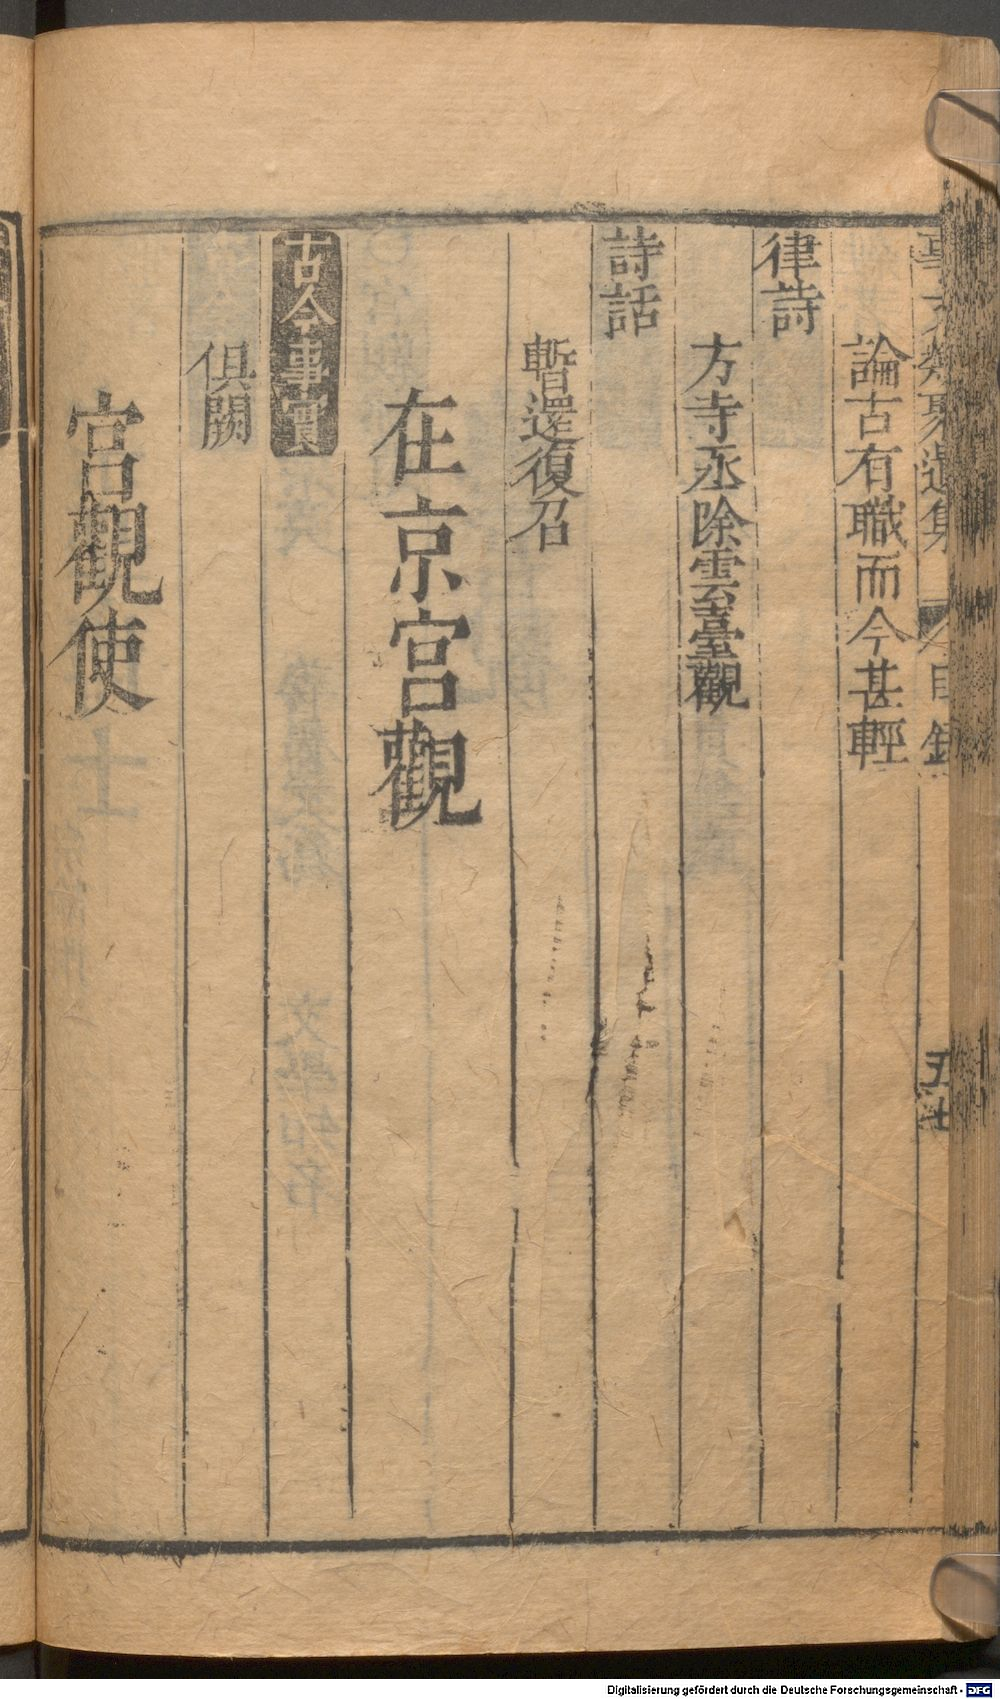 事文類聚遺集 目錄 五十七
論古有職而今甚輕
律詩
方寺丞除雲臺觀
詩話
暫還復召
在京宮觀
古今事實
俱闕
宮觀使
Digitalisierung gefördert durch die Deutsche Forschungsgemeinschaft - DFG